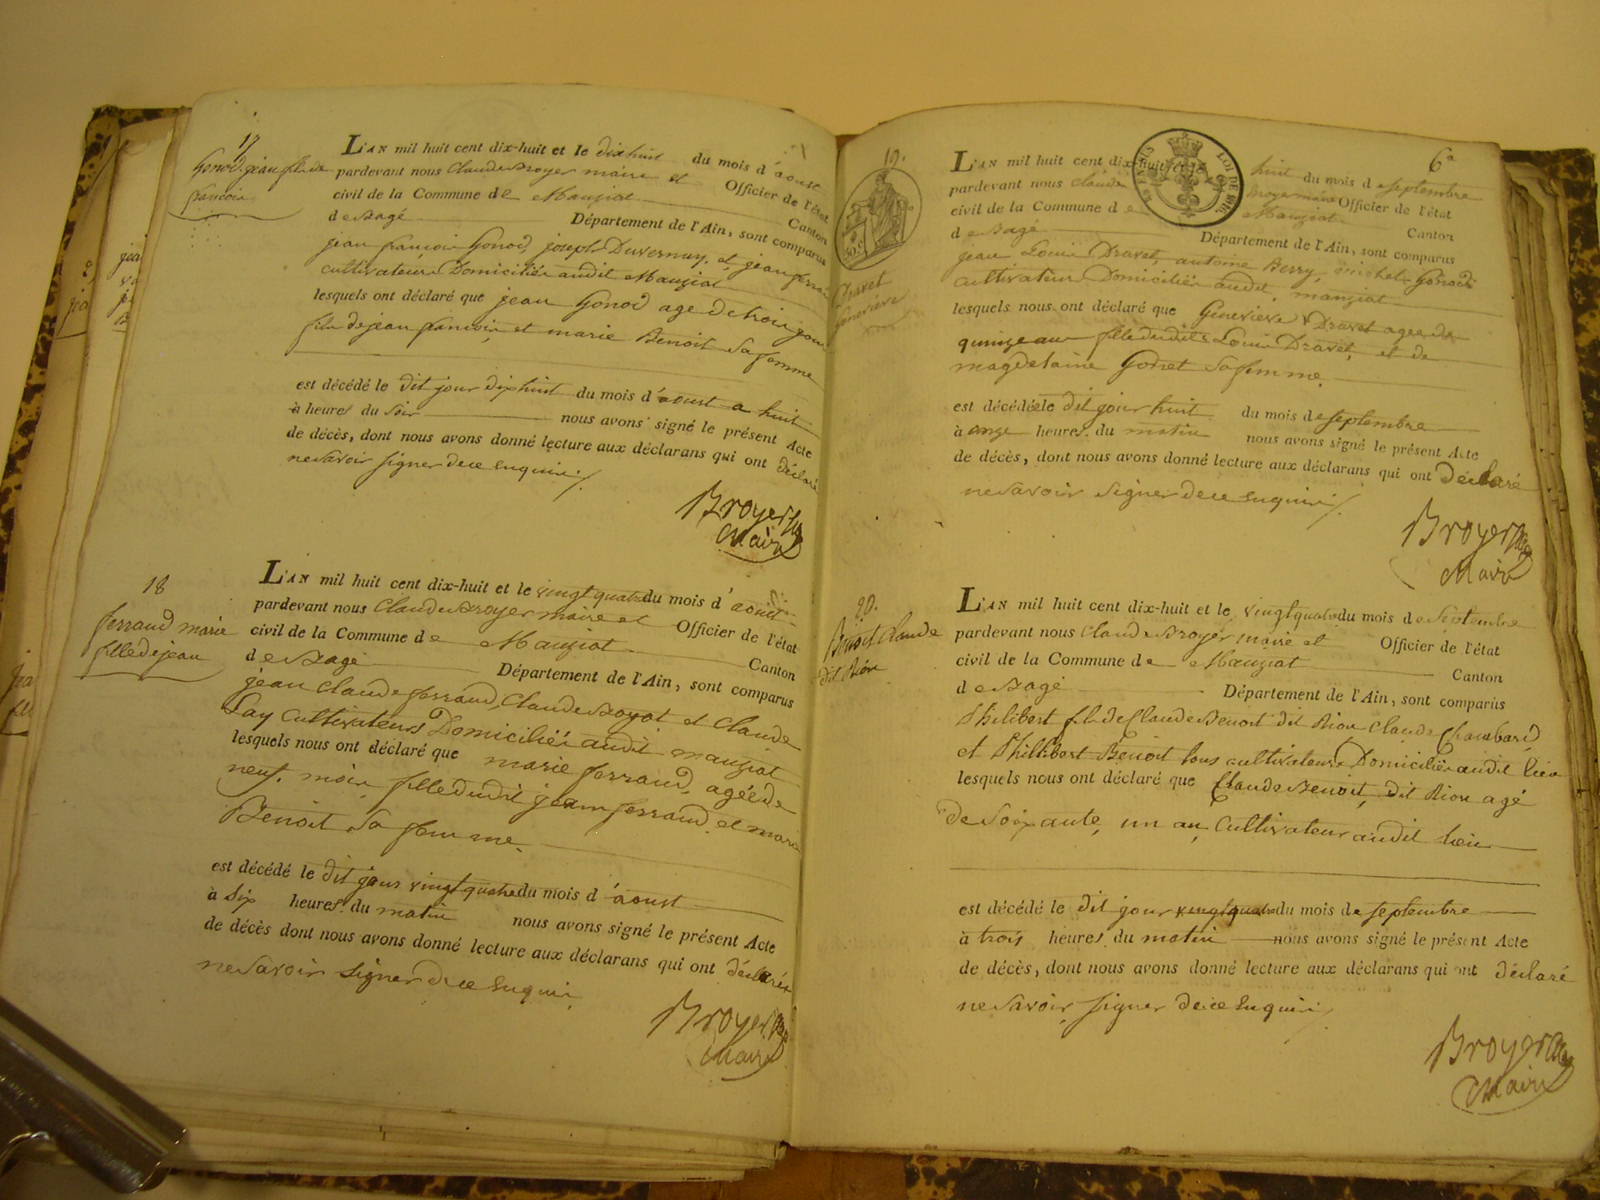 17
Gonod jean fils de
francois
L'AN mil huit cent dix-huit et le dixhuit du mois d'aoust
pardevant nous Claude Broyer maire et Officier de l'état
civil de la Commune de Manziat Canton
de Bagé Département de l'Ain, sont comparus
jean francois Gonod, joseph Duvernay, et jean ferra
cultivateurs Domiciliés audit Manziat
lesquels nous ont déclaré que jean Gonod age de trois jour
fils de jean francois et marie Benoit sa femme
est décédé le dit jour dixhuit du mois d'aoust a huit
à heures du soir nous avons signé le présent Acte
de décès, dont nous avons donné lecture aux déclarans qui ont déclaré
ne savoir signer de ce enquis
Broyer
Maire
18
ferraud marie
fille de jean
L'AN mil huit cent dix-huit et le vingt quatre du mois d'aoust
pardevant nous Claude Broyer maire et Officier de l'état
civil de la Commune de Manziat Canton
de Bagé Département de l'Ain, sont comparus
jean Claude ferraud, Claude Boyat et Claude
Lay Cultivateurs Domiciliés audit manziat
lesquels nous ont déclaré que marie ferraud, agée de
neuf mois, fille dudit jean ferraud et marie
Benoit sa femme
est décédé le dit jour vingt quatre du mois d'aoust
à six heures du matin nous avons signé le présent Acte
de décès dont nous avons donné lecture aux déclarans qui ont déclaré
ne savoir signer de ce enquis
Broyer
Maire
6e
19.
Dravet
Genevieve
50 c
LOI DE 1816
L'AN mil huit cent dix-huit et le huit du mois de septembre
pardevant nous Claude Broyer maire Officier de l'état
civil de la Commune de Manziat Canton
de Bagé Département de l'Ain, sont comparus
jean Louis Dravet, antoine Berry, michel Gonod
cultivateurs Domiciliés audit manziat
lesquels nous ont déclaré que Genevieve Dravet agee de
quinze ans fille dudit Louis Dravet, et de
magdelaine Gonet sa femme
est décédée le dit jour huit du mois de septembre
à onze heures du matin nous avons signé le présent Acte
de décès, dont nous avons donné lecture aux déclarans qui ont déclaré
ne savoir signer de ce enquis
Broyer
Maire
20.
Benoit Claude
dit Rion
L'AN mil huit cent dix-huit et le vingt quatre du mois de septembre
pardevant nous Claude Broyer maire et Officier de l'état
civil de la Commune de Manziat Canton
de Bagé Département de l'Ain, sont comparus
Philibert fils de Claude Benoit dit Rion Claude Chambard
et Philibert Benoit tous cultivateurs Domiciliés audit lieu
lesquels nous ont déclaré que Claude Benoit, dit Rion agé
de soixante, un an, Cultivateur audit lieu
est décédé le dit jour vingt quatre du mois de septembre
à trois heures du matin nous avons signé le présent Acte
de décès, dont nous avons donné lecture aux déclarans qui ont déclaré
ne savoir signer de ce enquis
Broyer
Maire